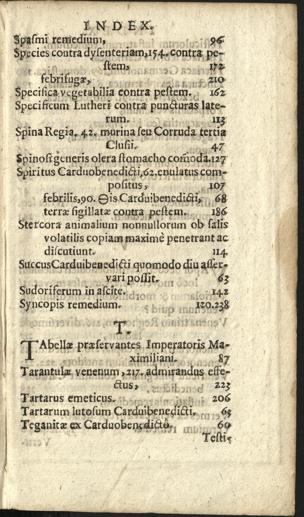 INDEX.
Spasmi remedium, 96
Species contra dysenteriam, 154. contra pe-
stem, 172
febrifugæ, 210
Specifica vegetabilia contra pestem. 162
Specificum Lutheri contra puncturas late-
rum. 113
Spina Regia. 42. murina seu Corruda tertia
Clusii. 47
Spinosi generis olera stomacho comoda. 127
Spiritus Carduobenedicti, 62. enulatus com-
positus, 107
febrilis, 90. ⊖is Carduibenedicti, 68
terræ sigillatæ contra pestem. 186
Stercora animalium nonnullorum ob salis
volatilis copiam maximè penetrant ac
discutiunt. 114
Succus Carduibenedicti quomodo diu asser-
vari possit. 63
Sudoriferum in ascite. 142
Syncopis remedium. 120. 238
T.
TAbellæ præservantes Imperatoris Ma-
ximiliani. 87
Tarantulæ venenum, 217. admirandus effe-
ctus, 223
Tartarus emeticus. 206
Tartarum lutosum Carduibenedicti. 65
Teganitæ ex Carduobenedicto. 60
Testi-